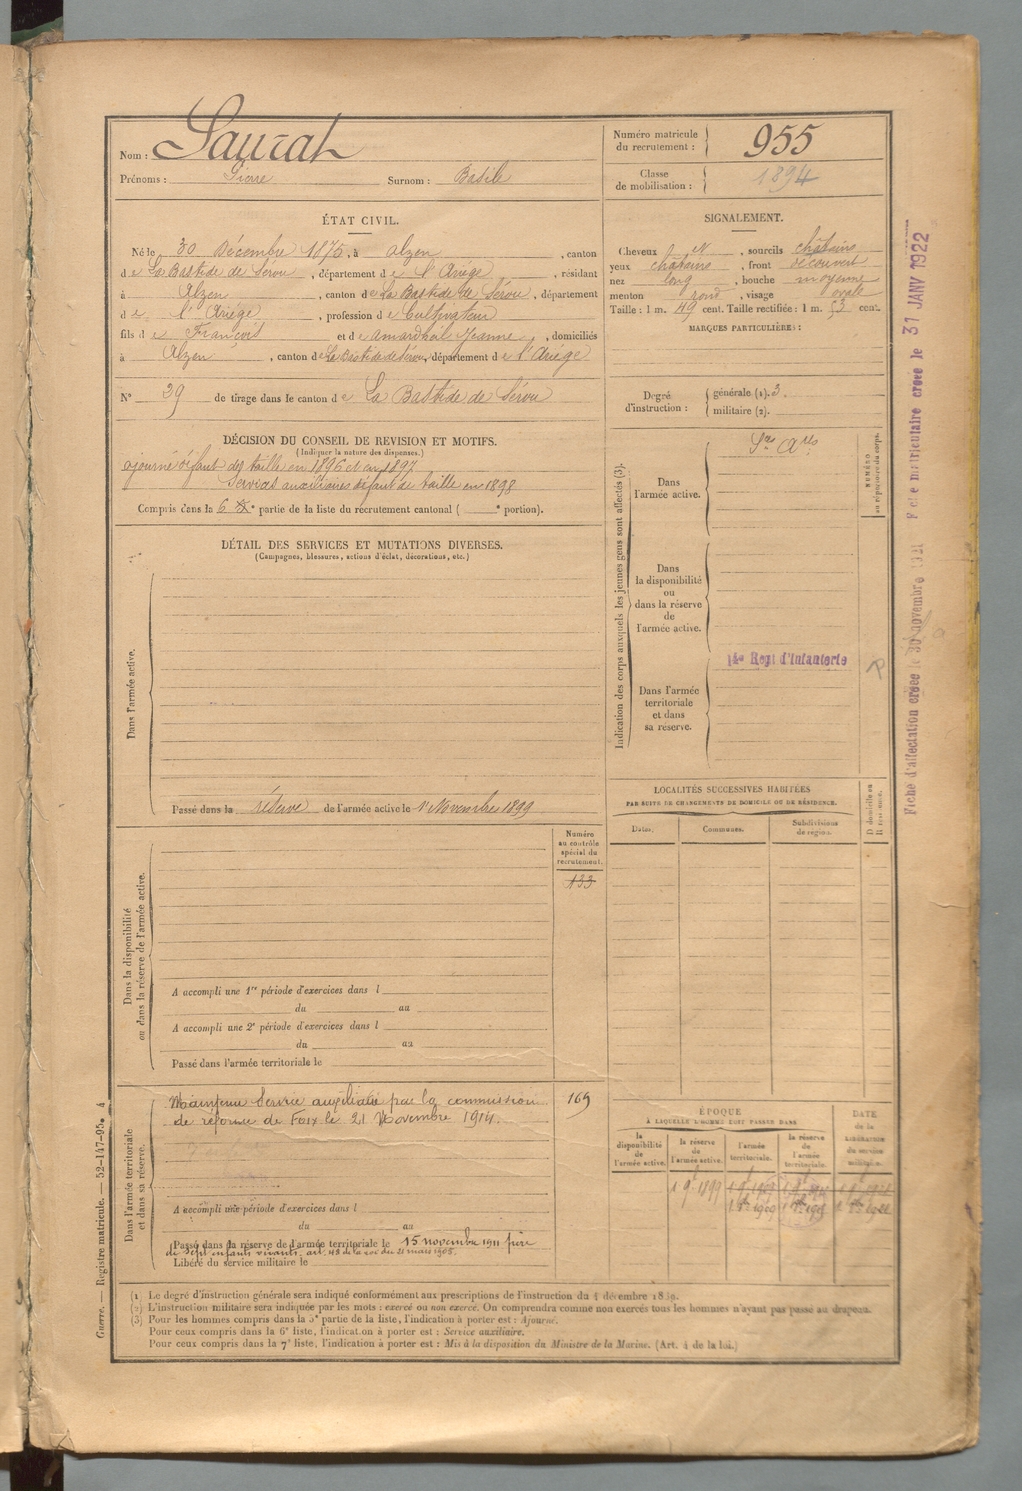 Nom : Sauzat
Prénoms : Pierre Surnom : Basile
Numéro matricule
du recrutement : 955
Classe
de mobilisation : 1894
ÉTAT CIVIL.
Né le 30 Décembre 1875, à Alzen, canton
de La Bastide de Sérou, département de l'Ariège, résidant
à Alzen, canton de La Bastide de Sérou, département
de l'Ariège, profession de Cultivateur
fils de François et de Amardheil Jeanne, domiciliés
à Alzen, canton de La Bastide de Sérou, département de l'Ariège
N° 39 de tirage dans le canton de La Bastide de Sérou
SIGNALEMENT.
Cheveux N, sourcils châtains
yeux châtains, front découvert
nez long, bouche moyenne
menton rond, visage ovale
Taille : 1 m. 49 cent. Taille rectifiée : 1 m. 53 cent.
MARQUES PARTICULIÈRES :
Degré
d'instruction :
générale (1). 3.
militaire (2).
DÉCISION DU CONSEIL DE REVISION ET MOTIFS.
(Indiquer la nature des dispenses.)
ajourné défaut de taille en 1896 et en 1897
Services auxiliaires défaut de taille en 1898
Compris dans la 6 e partie de la liste du recrutement cantonal ( e portion).
DÉTAIL DES SERVICES ET MUTATIONS DIVERSES.
(Campagnes, blessures, actions d'éclat, décorations, etc.)
Dans l'armée active.
Passé dans la réserve de l'armée active le 1er Novembre 1899
Indication des corps auxquels les jeunes gens sont affectés (3).
Dans
l'armée active.
Sces Ares
Dans
la disponibilité
ou
dans la réserve
de
l'armée active.
Dans l'armée
territoriale
et dans
sa réserve.
14e Regt d'Infanterie
NUMÉRO
au répertoire du corps.
LOCALITÉS SUCCESSIVES HABITÉES
PAR SUITE DE CHANGEMENTS DE DOMICILE OU DE RÉSIDENCE.
Dates.
Communes.
Subdivisions
de région.
D domicile ou
R résidence.
Numéro
au contrôle
spécial du
recrutement.
133
Dans la disponibilité
ou dans la réserve de l'armée active.
A accompli une 1re période d'exercices dans l
du au
A accompli une 2e période d'exercices dans l
du au
Passé dans l'armée territoriale le
Dans l'armée territoriale
et dans sa réserve.
Maintenu Service auxiliaire par la commission
de réforme de Foix le 21 Novembre 1914.
169
A accompli une période d'exercices dans l
du au
Passé dans la réserve de l'armée territoriale le 15 novembre 1911 père
de sept enfants vivants. art. 48 de la loi du 21 mars 1905.
Libéré du service militaire le
ÉPOQUE
À LAQUELLE L'HOMME DOIT PASSER DANS
la
disponibilité
de
l'armée active.
la réserve
de
l'armée active.
l'armée
territoriale.
la réserve
de
l'armée
territoriale.
DATE
de la
libération
du service
militaire.
1 9bre 1899
Guerre. — Registre matricule. — 52-147-95. 4
Fiche d'affectation créée le 30 novembre 1921 Fiche matriculaire créée le 31 JANV 1922
(1) Le degré d'instruction générale sera indiqué conformément aux prescriptions de l'instruction du 4 décembre 1889.
(2) L'instruction militaire sera indiquée par les mots : exercé ou non exercé. On comprendra comme non exercés tous les hommes n'ayant pas passé au drapeau.
(3) Pour les hommes compris dans la 5e partie de la liste, l'indication à porter est : Ajourné.
Pour ceux compris dans la 6e liste, l'indication à porter est : Service auxiliaire.
Pour ceux compris dans la 7e liste, l'indication à porter est : Mis à la disposition du Ministre de la Marine. (Art. 4 de la loi.)